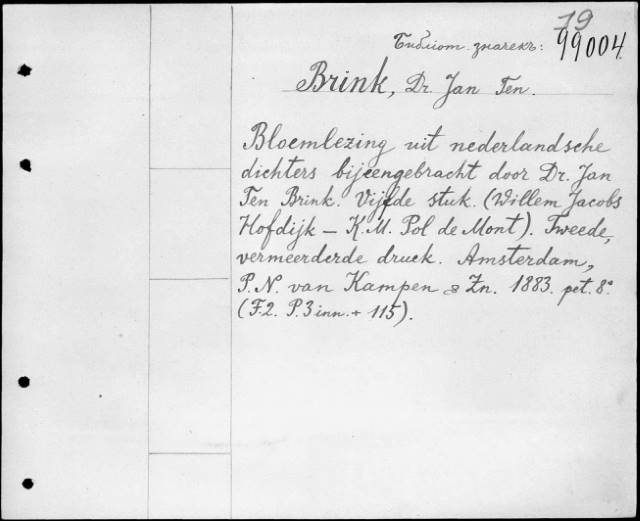 79
Библіот. значекъ: 99004.
Brink, Dr. Jan Ten.
Bloemlezing uit nederlandsche
dichters bijeengebracht door Dr. Jan
Ten Brink. Vijfde stuk. (Willem Jacobs
Hofdijk — K.M. Pol de Mont). Tweede,
vermeerderde druck. Amsterdam,
P.N. van Kampen & Zn. 1883. pet. 8º
(F.2. P.3 inn. + 115).